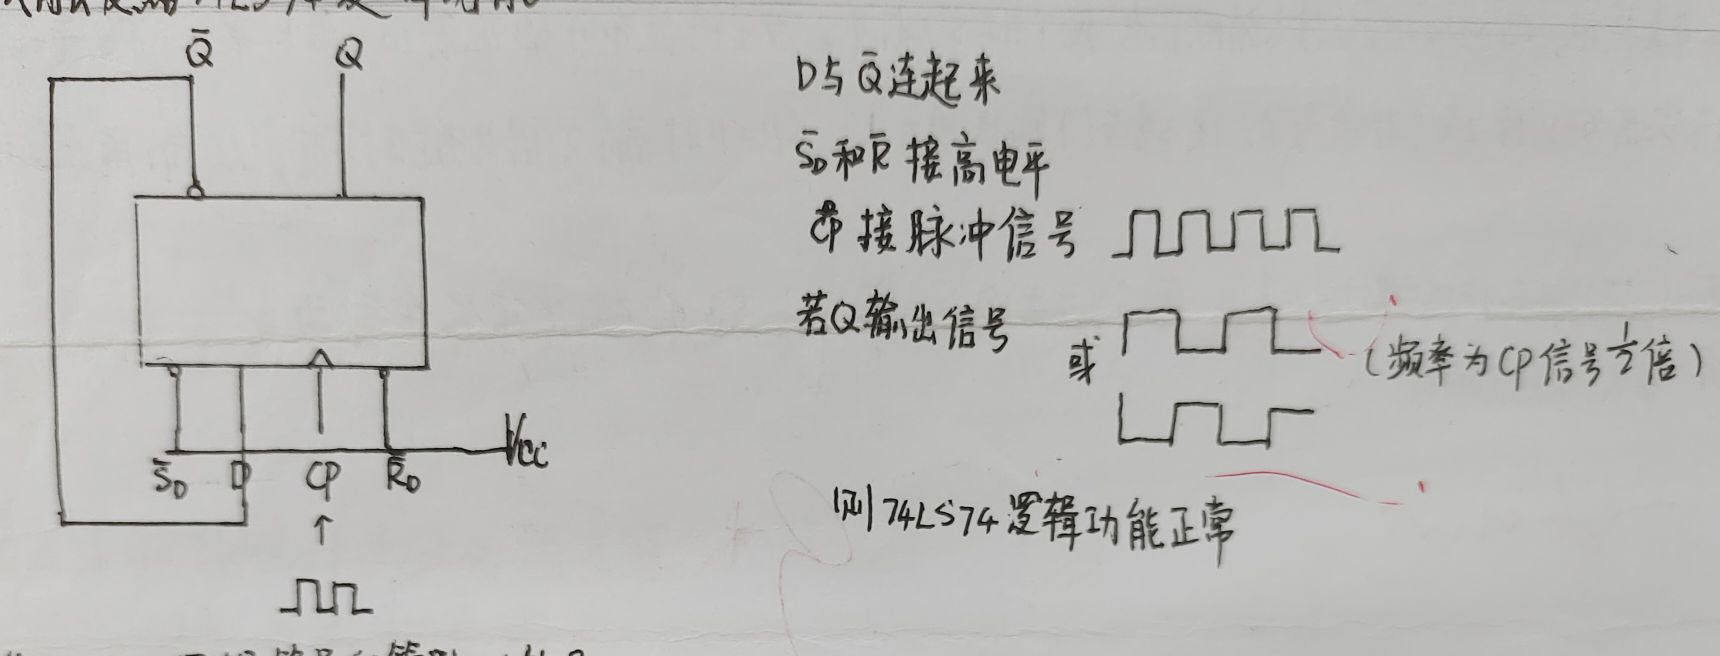 Q̄ Q
D与Q̄连起来
S̄D和R̄接高电平
CP接脉冲信号
若Q输出信号
或
(频率为CP信号1/2倍)
VCC
S̄D D CP R̄D
则74LS74逻辑功能正常